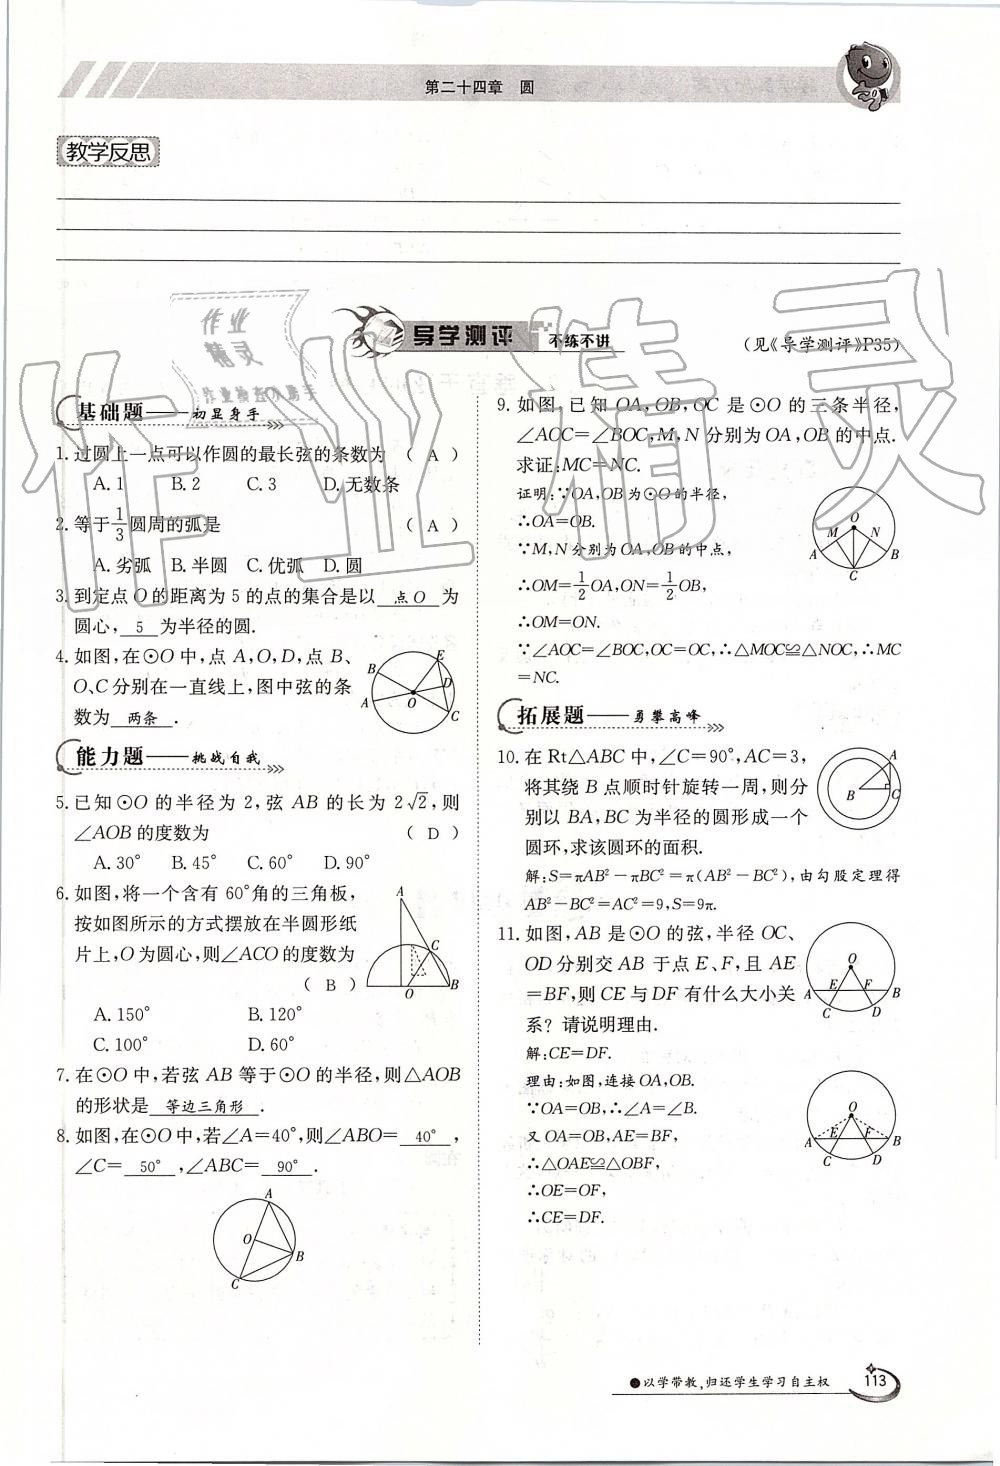 第二十四章　圆
教学反思
导学测评 不练不讲
(见《导学测评》P35)
基础题——初显身手
1. 过圆上一点可以作圆的最长弦的条数为 ( A )
A. 1　B. 2　C. 3　D. 无数条
2. 等于1/3圆周的弧是 ( A )
A. 劣弧　B. 半圆　C. 优弧　D. 圆
3. 到定点 O 的距离为 5 的点的集合是以 点O 为
圆心, 5 为半径的圆.
4. 如图,在⊙O 中,点 A,O,D,点 B、
O、C 分别在一直线上,图中弦的条
数为 两条 .
B E D A O C
能力题——挑战自我
5. 已知⊙O 的半径为 2,弦 AB 的长为 2√2,则
∠AOB 的度数为 ( D )
A. 30°　B. 45°　C. 60°　D. 90°
6. 如图,将一个含有 60°角的三角板,
按如图所示的方式摆放在半圆形纸
片上,O 为圆心,则∠ACO 的度数为
( B )
A. 150°　B. 120°
C. 100°　D. 60°
A C O B
7. 在⊙O 中,若弦 AB 等于⊙O 的半径,则△AOB
的形状是 等边三角形 .
8. 如图,在⊙O 中,若∠A=40°,则∠ABO= 40° ,
∠C= 50° ,∠ABC= 90° .
A O B C
9. 如图,已知 OA,OB,OC 是⊙O 的三条半径,
∠AOC=∠BOC,M,N 分别为 OA,OB 的中点.
求证:MC=NC.
证明:∵OA,OB 为⊙O 的半径,
∴OA=OB.
∵M,N 分别为 OA,OB 的中点,
∴OM=1/2OA,ON=1/2OB,
∴OM=ON.
∵∠AOC=∠BOC,OC=OC,∴△MOC≌△NOC,∴MC
=NC.
O M N A B C
拓展题——勇攀高峰
10. 在 Rt△ABC 中,∠C=90°,AC=3,
将其绕 B 点顺时针旋转一周,则分
别以 BA,BC 为半径的圆形成一个
圆环,求该圆环的面积.
解:S=πAB²-πBC²=π(AB²-BC²),由勾股定理得
AB²-BC²=AC²=9,S=9π.
A B C
11. 如图,AB 是⊙O 的弦,半径 OC、
OD 分别交 AB 于点 E、F,且 AE
=BF,则 CE 与 DF 有什么大小关
系? 请说明理由.
解:CE=DF.
理由:如图,连接 OA,OB.
∵OA=OB,∴∠A=∠B.
又 OA=OB,AE=BF,
∴△OAE≌△OBF,
∴OE=OF,
∴CE=DF.
O E F A B C D
O E F A B C D
●以学带教,归还学生学习自主权
113
作业精灵
作业
精灵